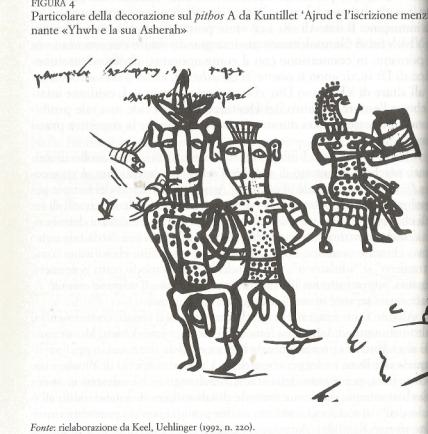 FIGURA 4
Particolare della decorazione sul pithos A da Kuntillet ‘Ajrud e l’iscrizione menzi
nante «Yhwh e la sua Asherah»
Fonte: rielaborazione da Keel, Uehlinger (1992, n. 220).